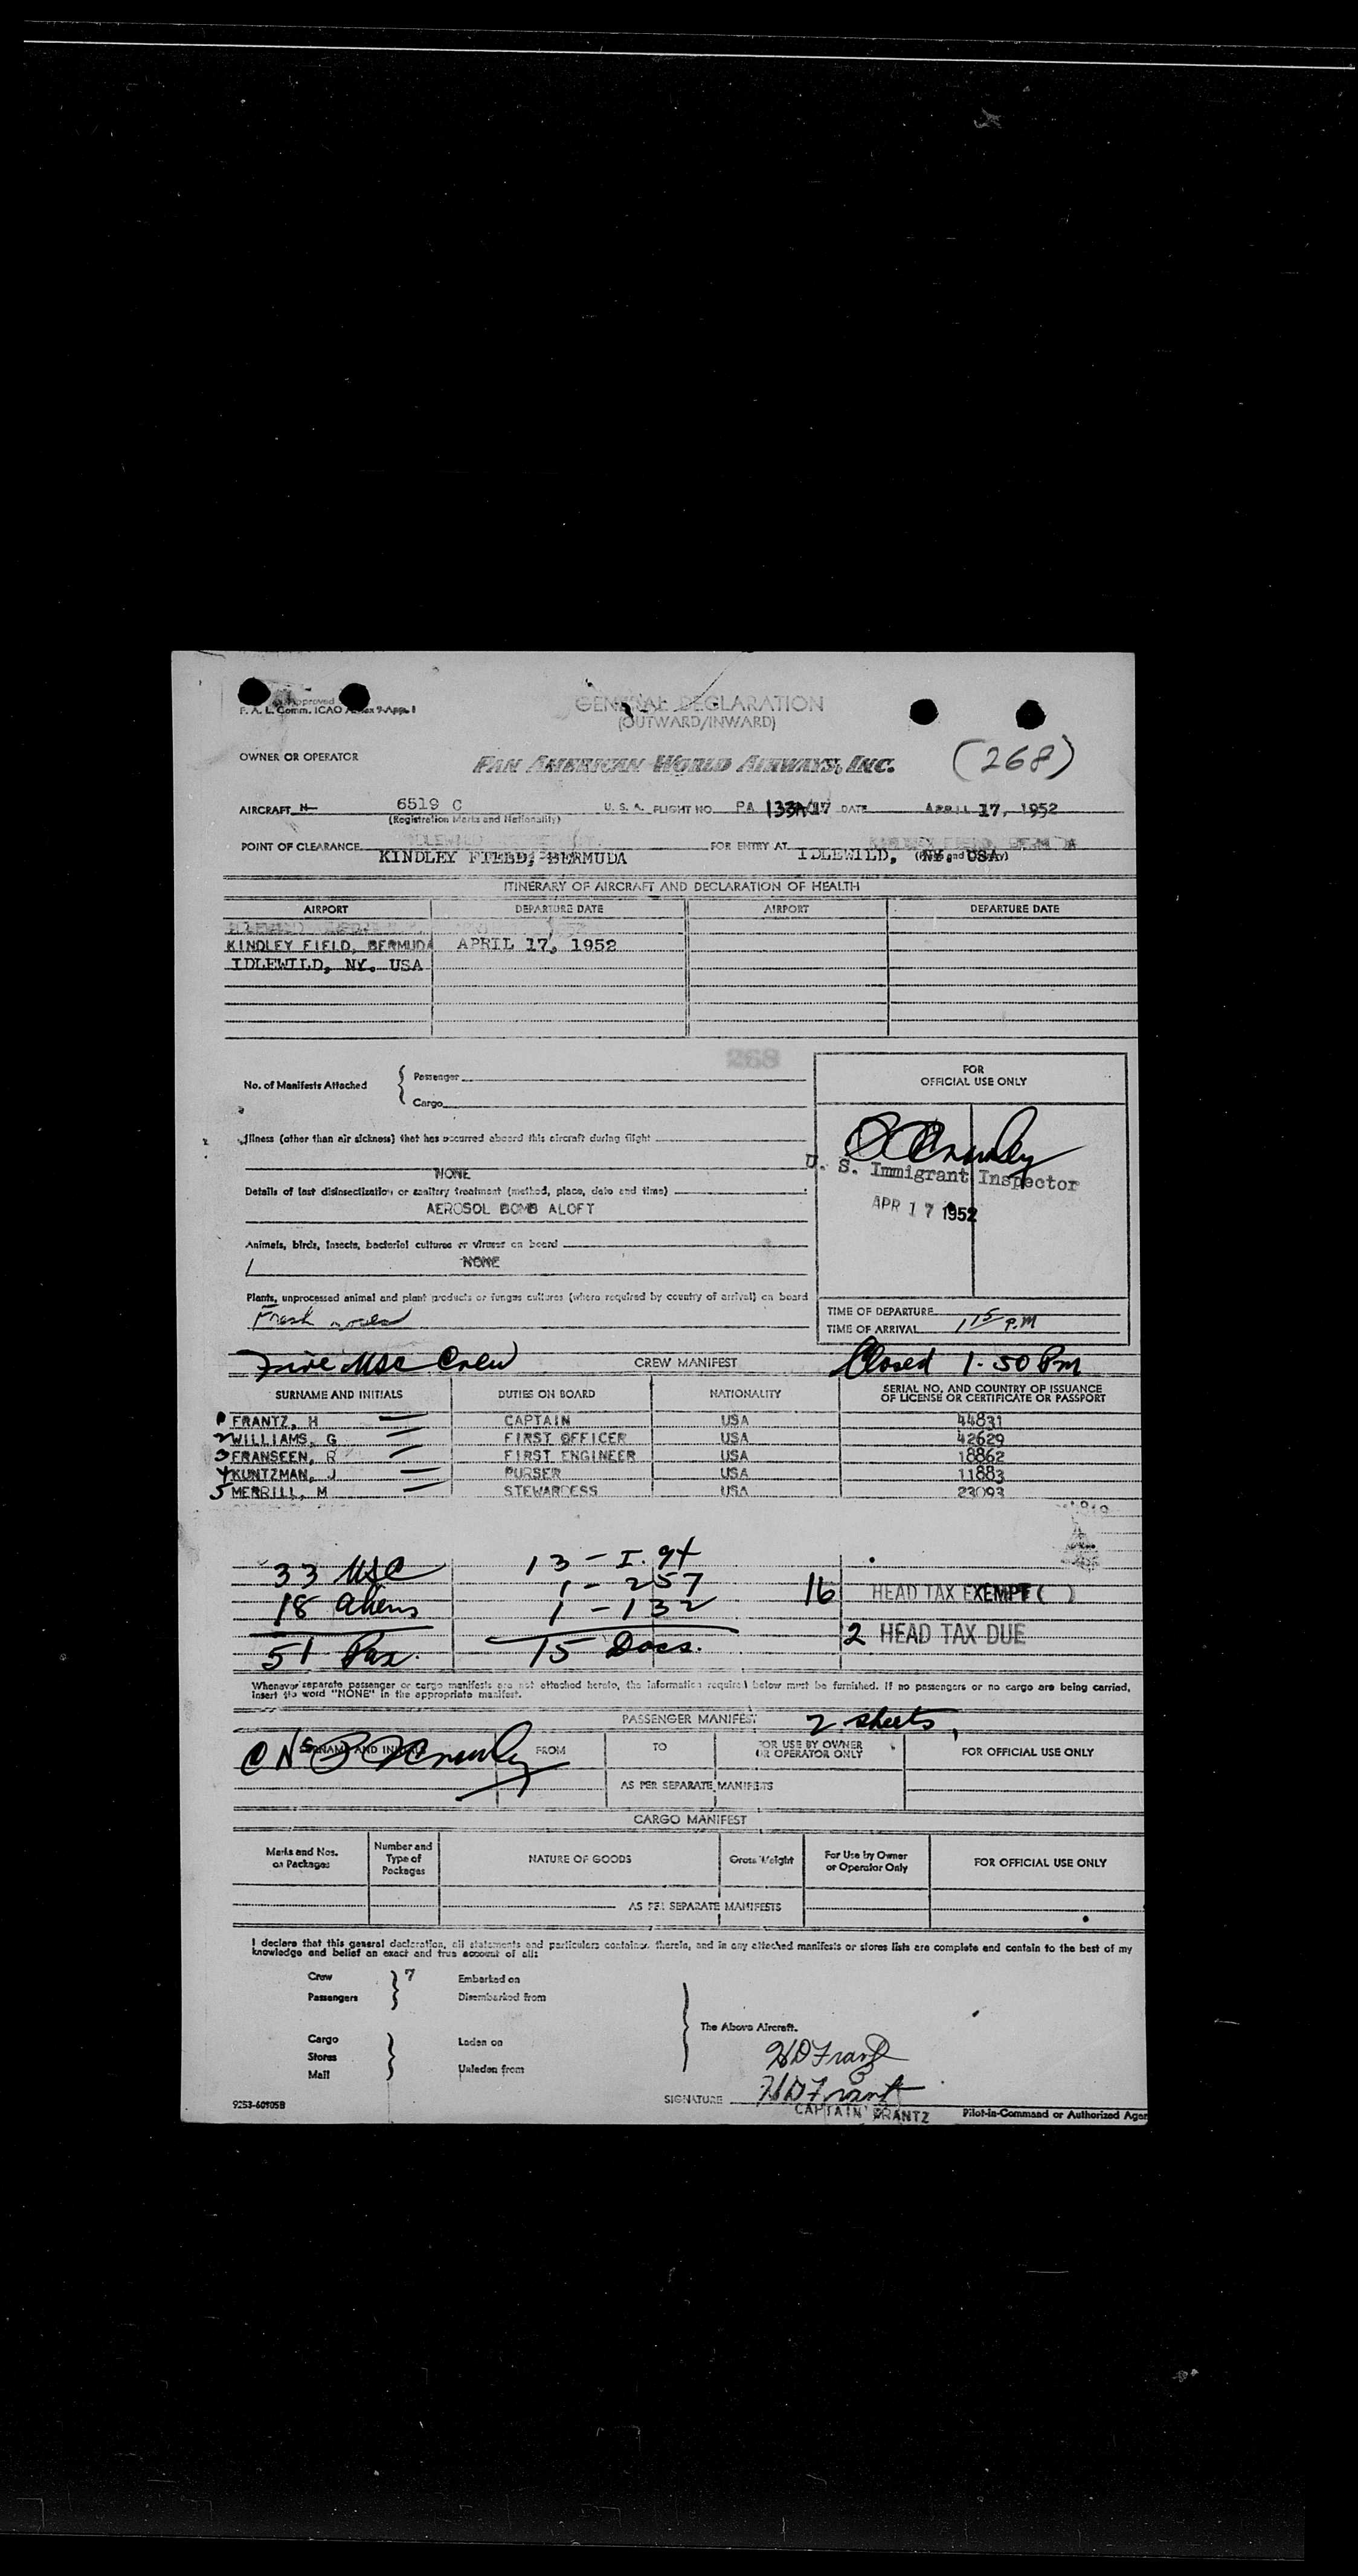 Approved
F. A. L. Comm. ICAO Annex 9-App. 1
GENERAL DECLARATION
(OUTWARD/INWARD)
OWNER OR OPERATOR PAN AMERICAN WORLD AIRWAYS, INC. (268)
AIRCRAFT N 6519 C U. S. A. FLIGHT NO. PA 133A/17 DATE APRIL 17, 1952
(Registration Marks and Nationality)
POINT OF CLEARANCE KINDLEY FIELD, BERMUDA FOR ENTRY AT IDLEWILD, NY USA
ITINERARY OF AIRCRAFT AND DECLARATION OF HEALTH
AIRPORT DEPARTURE DATE AIRPORT DEPARTURE DATE
KINDLEY FIELD, BERMUDA APRIL 17, 1952
IDLEWILD, NY. USA
268
No. of Manifests Attached { Passenger
Cargo
FOR
OFFICIAL USE ONLY
Illness (other than air sickness) that has occurred aboard this aircraft during flight
NONE
U. S. Immigrant Inspector
Details of last disinsectization or sanitary treatment (method, place, date and time)
AEROSOL BOMB ALOFT
APR 17 1952
Animals, birds, insects, bacterial cultures or viruses on board
NONE
Plants, unprocessed animal and plant products or fungus cultures (where required by country of arrival) on board
Fresh
TIME OF DEPARTURE
TIME OF ARRIVAL 1 15 P.M
Five USC Crew CREW MANIFEST Closed 1.50 Pm
SURNAME AND INITIALS DUTIES ON BOARD NATIONALITY SERIAL NO. AND COUNTRY OF ISSUANCE OF LICENSE OR CERTIFICATE OR PASSPORT
1 FRANTZ, H CAPTAIN USA 44831
2 WILLIAMS, G FIRST OFFICER USA 42629
3 FRANSEEN, R FIRST ENGINEER USA 18862
4 KUNTZMAN, J PURSER USA 11883
5 MERRILL, M STEWARDESS USA 23093
33 USC 13 - I. 94
18 aliens 1 - 257 16 HEAD TAX EXEMPT ( )
1 - 132
51 Pax. 15 Docs. 2 HEAD TAX DUE
Whenever separate passenger or cargo manifests are not attached hereto, the information required below must be furnished. If no passengers or no cargo are being carried,
insert the word "NONE" in the appropriate manifest.
PASSENGER MANIFEST 2 sheets,
SURNAME AND INITIALS FROM TO FOR USE BY OWNER OR OPERATOR ONLY FOR OFFICIAL USE ONLY
AS PER SEPARATE MANIFESTS
CARGO MANIFEST
Marks and Nos. on Packages Number and Type of Packages NATURE OF GOODS Gross Weight For Use by Owner or Operator Only FOR OFFICIAL USE ONLY
AS PER SEPARATE MANIFESTS
I declare that this general declaration, all statements and particulars contained therein, and in any attached manifests or stores lists are complete and contain to the best of my
knowledge and belief an exact and true account of all:
Crew } 7 Embarked on
Passengers Disembarked from
The Above Aircraft.
Cargo } Laden on
Stores
Mail Unladen from
H D Frantz
SIGNATURE H D Frantz
CAPTAIN FRANTZ Pilot-in-Command or Authorized Agen
9253-60105B